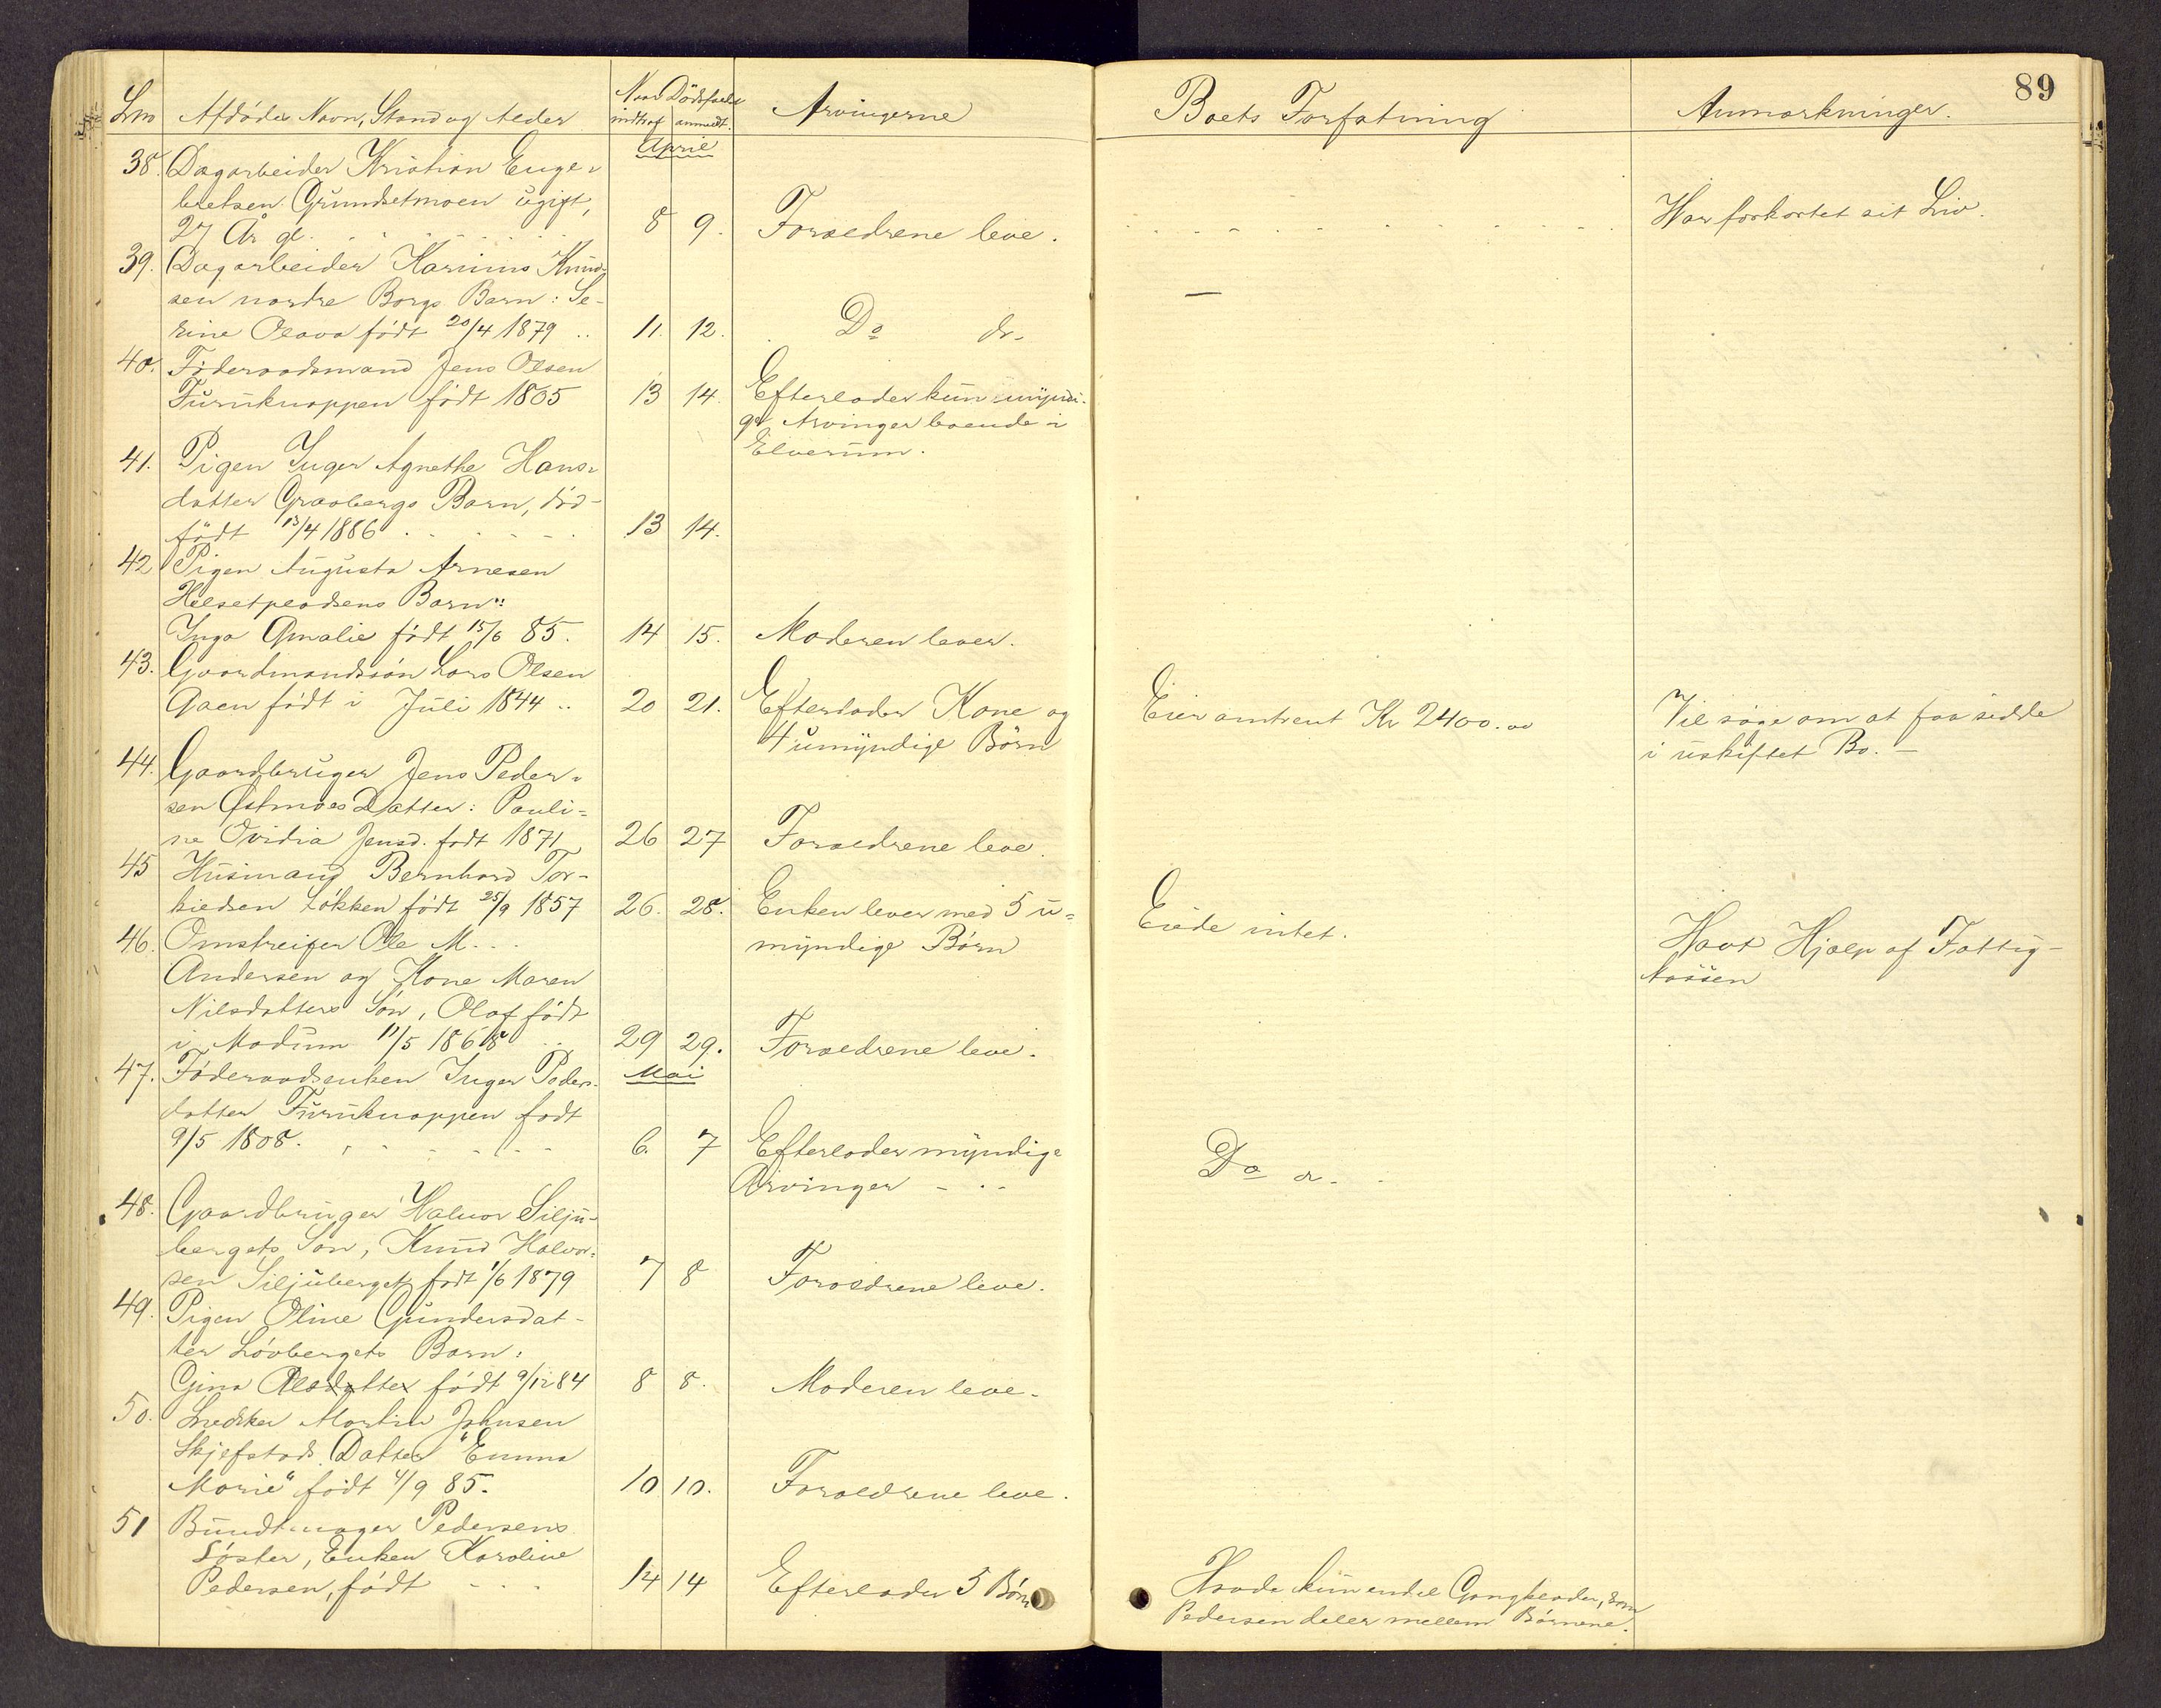 89
Lno Afdødes Navn, Stand og Alder Naar Dødsfaldet Arvingerne Boets Forfatning Anmærkninger.
indtraf anmeldt.
April
38. Dagarbeider Kristian Enge-
bretsen Grundsetmoen ugift,
27 År gl. 8 9. Forældrene leve. Har forkortet sit Liv.
39. Dagarbeider Karinus Knud-
sen nordre Borgs Barn: Se-
rine Olava født 20/4 1879 .. 11. 12. Do do. —
40. Føderaadsmand Jens Olsen
Furuknappen født 1805 13 14. Efterlader kun myndi-
ge Arvinger boende i
Elverum.
41. Pigen Inger Agnethe Hans-
datter Graabergs Barn, død-
født 13/4 1886 13 14.
42 Pigen Augusta Arnesen
Helsetpladsens Barn:
Inga Amalie født 15/6 85. 14 15. Moderen lever.
43. Gaardmandssøn Lars Olsen
Gaen født i Juli 1844 .. 20 21. Efterlader Kone og Eier omtrent Kr 2400.00 Vil søge om at faa sidde
4 umyndige Børn i uskiftet Bo. —
44. Gaardbruger Jens Peder-
sen Østmoes Datter: Pauli-
ne Ovidia Jensd. født 1871 26 27 Forældrene leve.
45 Husmand Bernhard Tor-
kildsen Løkken født 25/9 1857 26. 28. Enken lever med 5 u- Eiede intet. Havt Hjælp af Fattig-
myndige Børn kassen
46. Omstreifer Ole M...
Andersen og Kone Maren
Nilsdatters Søn, Olaf født
i Modum 11/5 1868 .. 29 29. Forældrene leve.
47. Føderaadsenken Inger Peders- Mai
datter Furuknappen født
9/5 1808. 6. 7 Efterlader myndige Do o.
Arvinger - . -
48. Gaardbruger Halvor Silju-
bergets Søn, Knud Halvor-
sen Siljuberget født 1/6 1879 7 8 Forældrene leve.
49. Pigen Oline Gundersdat-
ter Løvbergets Barn:
Gina Olsdatter født 9/12 84 8 8. Moderen leve.
50. Snedker Martin Johnsen
Skjefstads Datter "Emma
Marie" født 4/9 85. 10 10. Forældrene leve.
51 Bundtmager Pedersens
Søster, Enken Karoline
Pedersen, født - - . 14 14 Efterlader 5 Børn Havde kun endel Gangklæder, som
Pedersen deler mellem Børnene.